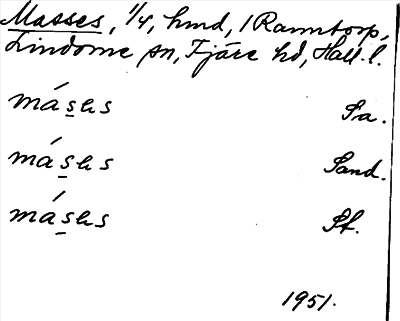 Masses, 1/4, hmd, 1 Ramntorp,
Lindome sn, Fjäre hd, Hall. l.
másɛs Sa.
másɛs Sand.
másɛs St.
1951.